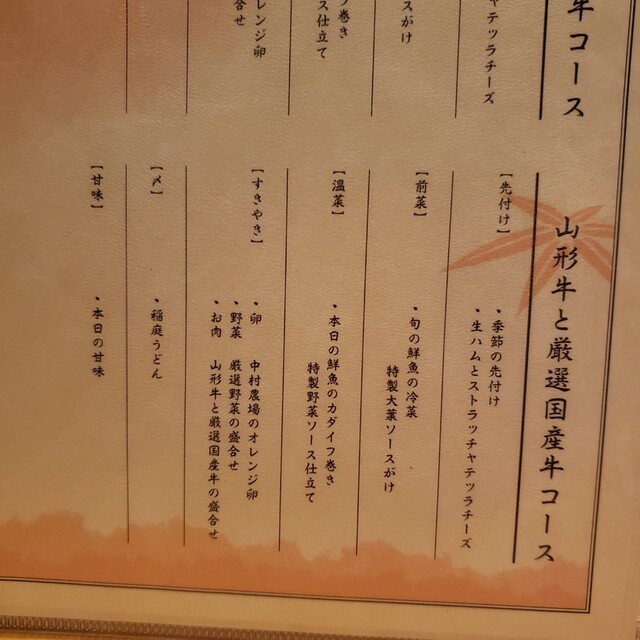 牛コース
ャテッラチーズ
スがけ
フ巻き
ス仕立て
レンジ卵
合せ
山形牛と厳選国産牛コース
【先付け】
・季節の先付け
・生ハムとストラッチャテッラチーズ
【前菜】
・旬の鮮魚の冷菜
特製大葉ソースがけ
【温菜】
・本日の鮮魚のカダイフ巻き
特製野菜ソース仕立て
【すきやき】
・卵 中村農場のオレンジ卵
・野菜 厳選野菜の盛合せ
・お肉 山形牛と厳選国産牛の盛合せ
【〆】
・稲庭うどん
【甘味】
・本日の甘味